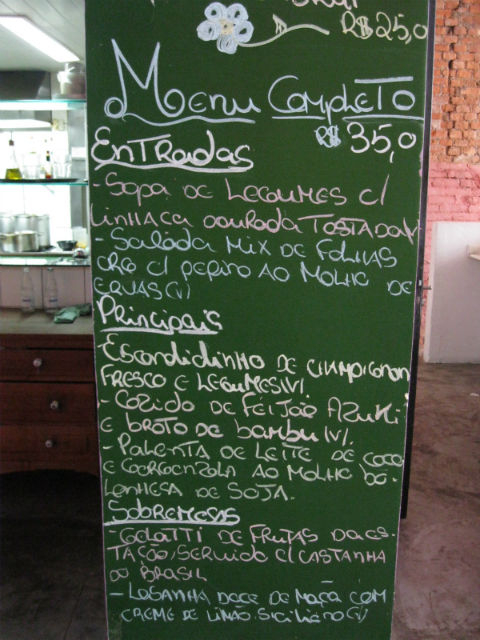 R$25,0
Menu Completo
R$ 35,0
Entradas
- Sopa de Legumes c/
linhaça dourada Tostada(V)
- Salada Mix de Folhas
org c/ pepino ao Molho de
ervas(V)
Principais
Escondidinho de champignon
Fresco e Legumes(V).
- Cozido de Feijão Azuki
e broto de bambu (V).
- Polenta de Leite de coco
e Gorgonzola ao Molho bo-
lonhesa de soja.
Sobremesas
- Gelatti de Frutas da es-
tação, servido c/ castanha
do Brasil
- Losanha doce de maçã com
creme de limão siciliano(V)